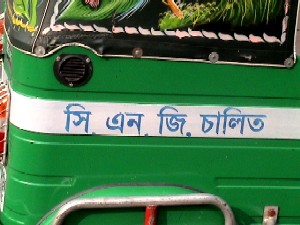 সি. এন. জি. চালিত